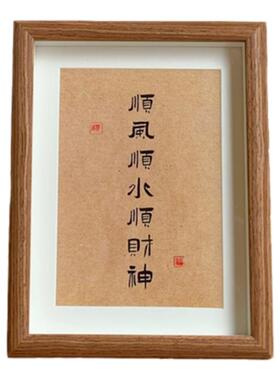 順風順水順財神